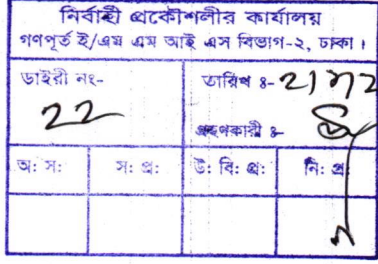 নির্বাহী প্রকৌশলীর কার্যালয়
গণপূর্ত ই/এম এম আই এস বিভাগ-২, ঢাকা।
ডাইরী নং-
22
তারিখ ঃ-
গ্রহণকারী ঃ-
অ: স: স: প্র: উ: বি: প্র: নি: প্র: